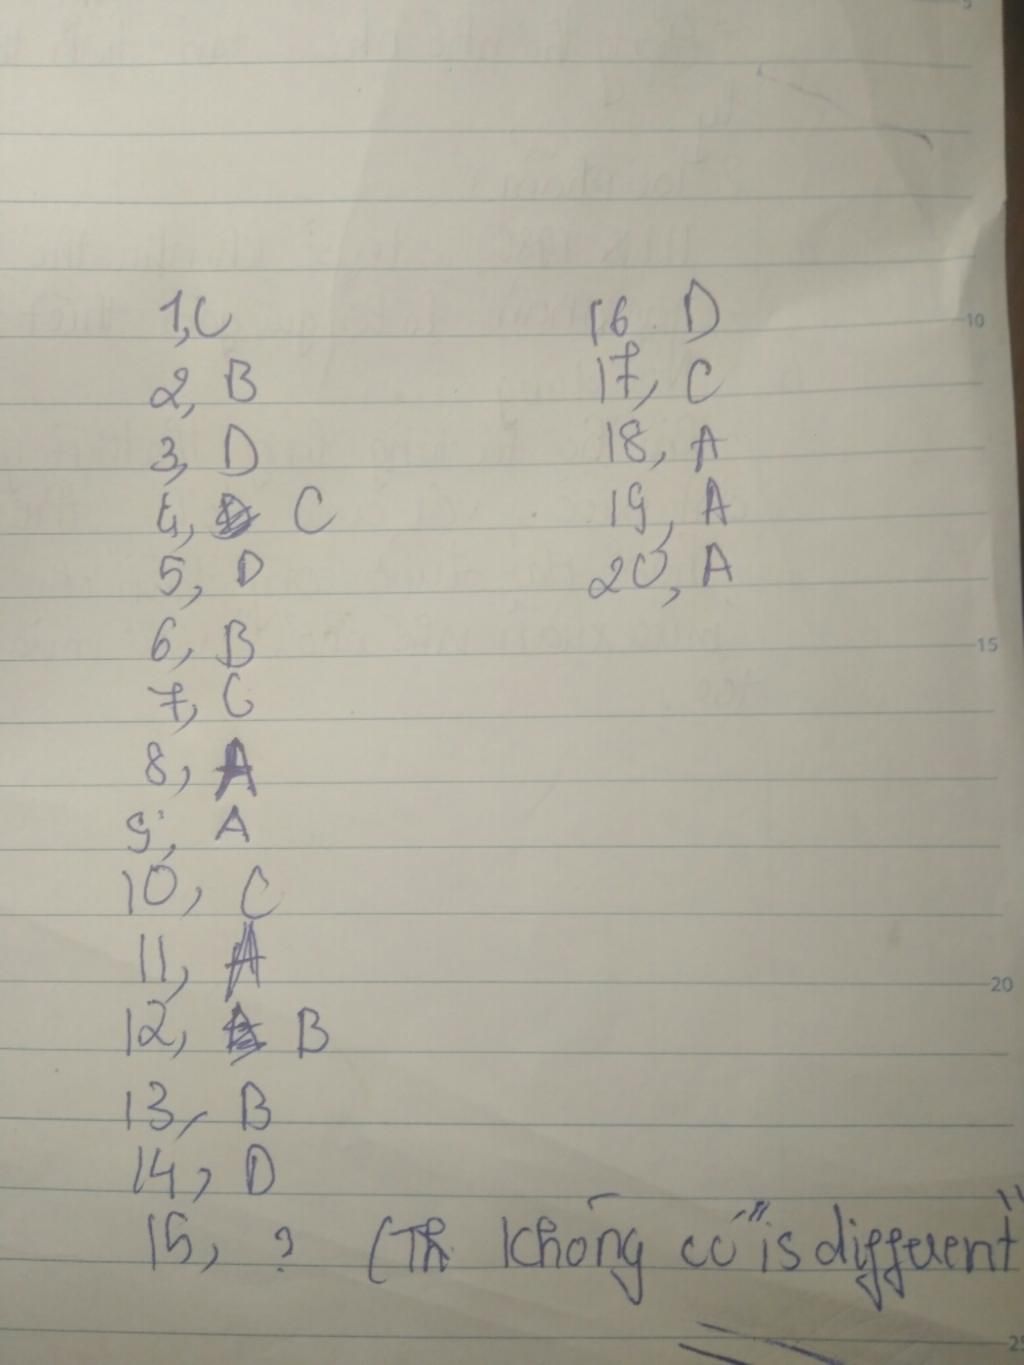 1, C
2, B
3, D
4, C
5, D
6, B
7, C
8, A
9, A
10, C
11, A
12, B
13, B
14, D
15, ? (Th không có "is different"
16. D
17, C
18, A
19, A
20, A
10
15
20
25